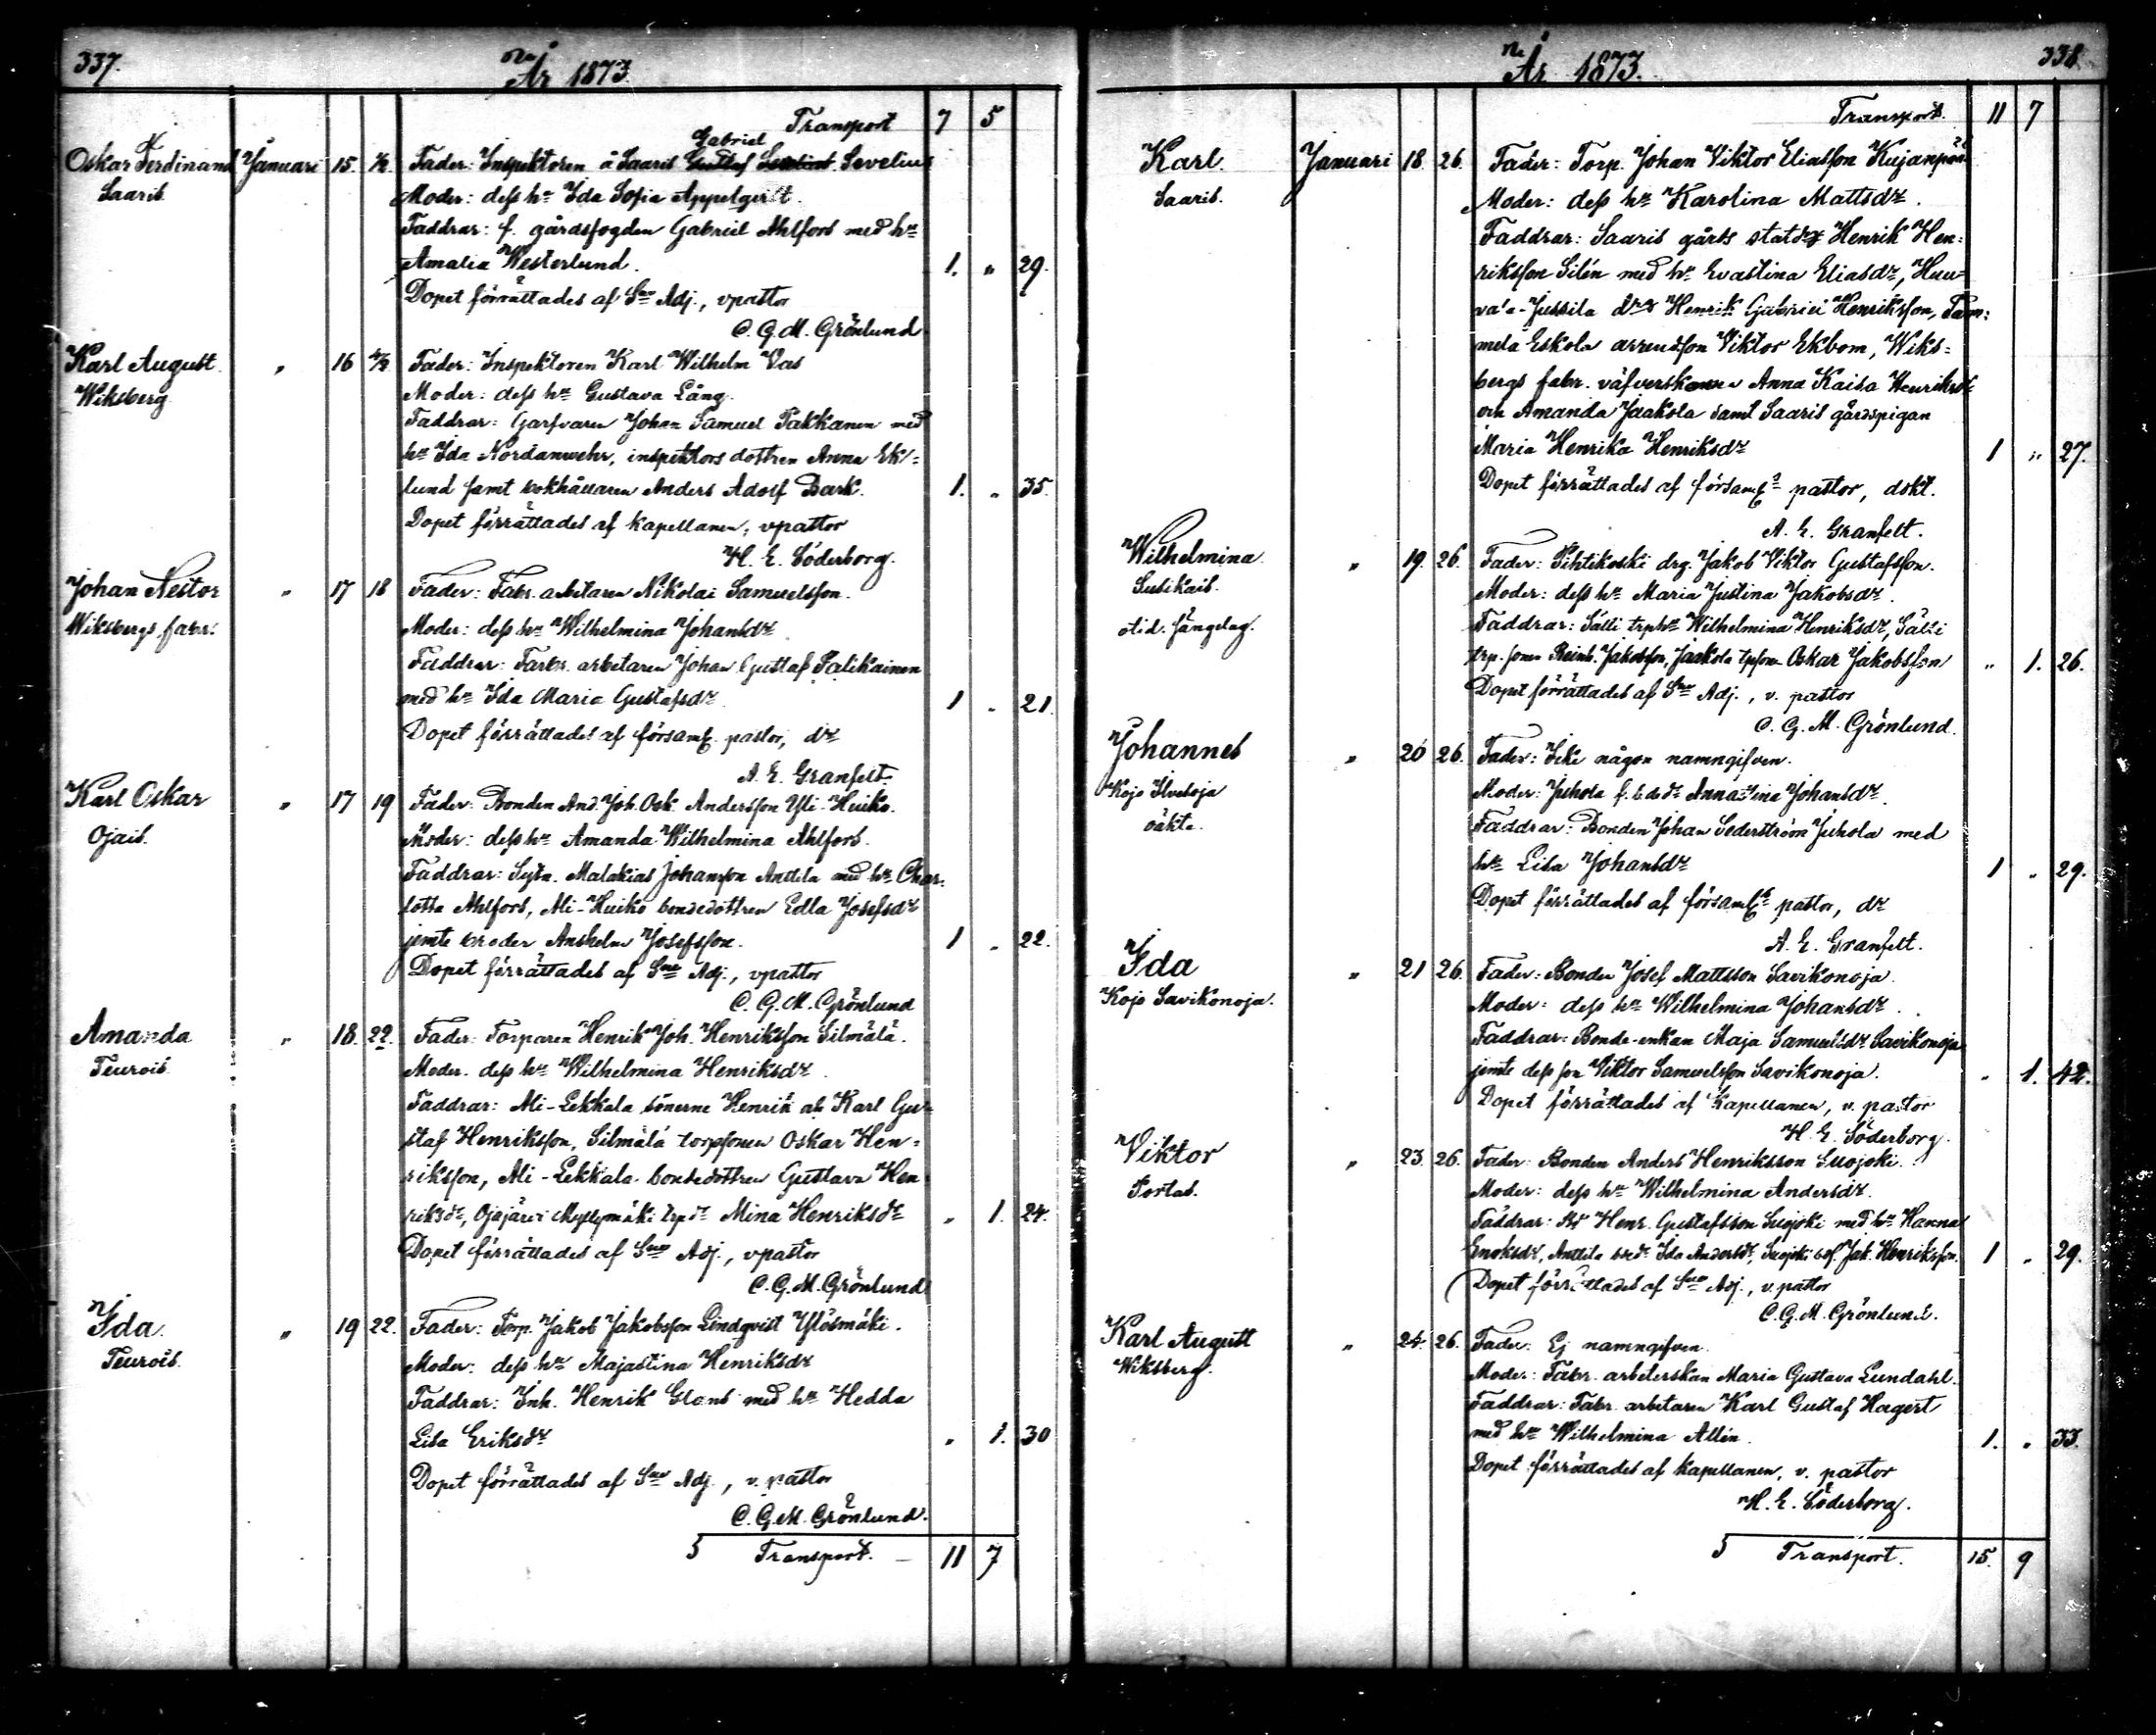 337.
År 1873.
Transport 7 5
Gabriel
Oskar Ferdinand Januari 15. Fader: Inspektoren å Saaris Gustaf Sevelius
Saaris. Moder: dess hu Ida Sofia Appelqvist.
Faddrar: f. gårdsfogden Gabriel Ahlfors med hu
Amalia Westerlund. 1. " 29.
Dopet förrättades af Sne Adj., vpastor
C. G. M. Grönlund.
Karl August " 16 Fader: Inspektoren Karl Wilhelm Vas
Wiksberg Moder: dess hu Gustava Lång.
Faddrar: Garfvaren Johan Samuel Takkanen med
hu Ida Nordanwehr, inspektors dottren Anna Ek-
lund samt bokhållaren Anders Adolf Bark. 1. " 35.
Dopet förrättades af kapellanen, vpastor
H. E. Söderborg.
Johan Nestor " 17 18 Fader: Fabr. arbetaren Nikolai Samuelsson.
Wiksbergs fabr. Moder: dess hu Wilhelmina Johansdr
Faddrar: Fabr. arbetaren Johan Gustaf Talikainen
med hu Ida Maria Gustafsdr 1 " 21.
Dopet förrättades af församl. pastor, dr
A. E. Granfelt.
Karl Oskar " 17 19 Fader: Bonden And. Joh. Osk. Andersson Yli-Huiko.
Ojais. Moder: dess hu Amanda Wilhelmina Ahlfors.
Faddrar: Malakias Johansson Anttila med hu Char-
lotta Ahlfors, Ali-Huiko bondedottren Edla Josefsdr
jemte broder Anshelm Josefsson. 1 " 22.
Dopet förrättades af Sne Adj., vpastor
C. G. M. Grönlund
Amanda " 18. 22. Fader: Torparen Henrik Joh. Henriksson Silmälä.
Teurois. Moder: dess hu Wilhelmina Henriksdr
Faddrar: Ali-Lekkala sönerne Henrik och Karl Gu-
staf Henriksson, Silmälä torpsonen Oskar Hen-
riksson, Ali-Lekkala bondedottren Gustava Hen-
riksdr, Ojajärvi Myllymäki Mina Henriksdr " 1. 24.
Dopet förrättades af Sne Adj., vpastor
C. G. M. Grönlund
Ida. " 19 22. Fader: Torp. Jakob Jakobsson Lindqvist Ylösmäki.
Teurois. Moder: dess hu Majastina Henriksdr
Faddrar: Inh. Henrik med hu Hedda
Lisa Eriksdr " 1. 30
Dopet förrättades af Sne Adj., v. pastor
C. G. M. Grönlund.
5 Transport. 11 7
338.
År 1873.
Transport. 11 7
Karl. Januari 18. 26. Fader: Torp. Johan Viktor Eliasson Kujanpää
Saaris. Moder: dess hu Karolina Mattsdr.
Faddrar: Saaris gårds Henrik Hen-
riksson Silén med hu Evastina Eliasdr,
Jussila Henrik Gabriel Henriksson, Tam-
mela Eskola Viktor Ekbom, Wiks-
bergs fabr. väfverskorna Anna Kaisa Henriksdr
och Amanda Jaakola samt Saaris gårdspigan
Maria Henrika Henriksdr 1 " 27.
Dopet förrättades af församl. pastor, dokt.
A. E. Granfelt.
Wilhelmina " 19. 26. Fader: Pihtikoski drg. Jakob Viktor Gustafsson.
Susikais. Moder: dess hu Maria Justina Jakobsdr.
Faddrar: Sälli Wilhelmina Henriksdr, Sälli
trp. sonen Reinh. Jakobsson, Jaakola Oskar Jakobsson " 1. 26.
Dopet förrättades af Sne Adj., v. pastor
C. G. M. Grönlund.
Johannes " 20 26. Fader: Icke någon namngifven.
Kojo Ilvesoja Moder: Juhola Annastina Johansdr.
oäkta. Faddrar: Bonden Johan Sederström Juhola med
hu Lisa Johansdr 1 " 29.
Dopet förrättades af församl. pastor, dr
A. E. Granfelt.
Ida " 21 26. Fader: Bonden Josef Mattsson Savikonoja.
Kojo Savikonoja. Moder: dess hu Wilhelmina Johansdr.
Faddrar: Bonde-enkan Maja Samuelsdr Savikonoja
jemte dess son Viktor Samuelsson Savikonoja. " 1. 42.
Dopet förrättades af Kapellanen, v. pastor
H. E. Söderborg.
Viktor " 23. 26. Fader: Bonden Anders Henriksson Suojoki.
Portas. Moder: dess hu Wilhelmina Andersdr.
Faddrar: Henr. Gustafsson Suojoki med hu Hanna
Enoksdr, Anttila Ida Andersdr, Suojoki Jak. Henriksson. 1 " 29.
Dopet förrättades af Sne Adj., v. pastor
C. G. M. Grönlund.
Karl August " 24. 26. Fader: Ej namngifven.
Wiksberg. Moder: Fabr. arbeterskan Maria Gustava Lundahl.
Faddrar: Fabr. arbetaren Karl Gustaf Hagert
med hu Wilhelmina Allén. 1. " 33.
Dopet förrättades af kapellanen, v. pastor
H. E. Söderborg.
5 Transport. 15. 9